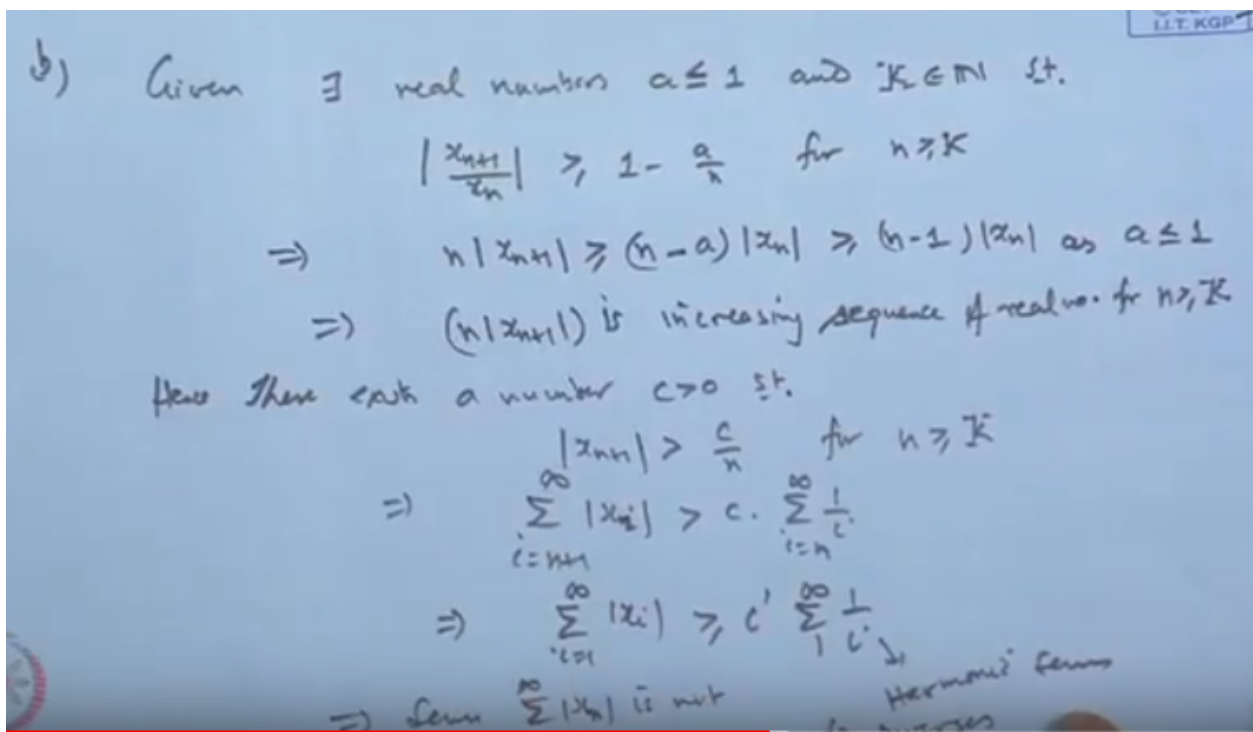 I.I.T. KGP
b) Given ∃ real numbers a ≤ 1 and K ∈ ℕ st.
|x_{n+1}/x_n| ≥ 1 - a/n for n ≥ K
⇒ n|x_{n+1}| ≥ (n-a)|x_n| ≥ (n-1)|x_n| as a ≤ 1
⇒ (n|x_{n+1}|) is increasing sequence of real no. for n ≥ K
Hence There exists a number c > 0 st.
|x_{n+1}| > c/n for n ≥ K
⇒ ∑_{i=n+1}^{∞} |x_i| > c. ∑_{i=n}^{∞} 1/i
⇒ ∑_{i=1}^{∞} |x_i| ≥ c' ∑_{1}^{∞} 1/i
Harmonic Series
⇒ Series ∑^{∞} |x_n| is not
diverges